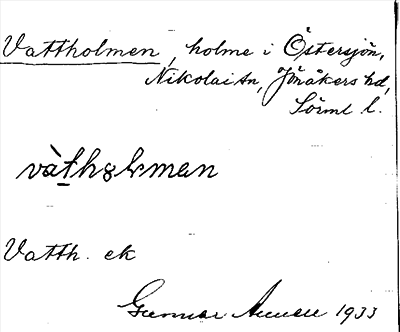 Vattholmen, holme i Östersjön,
Nikolai sn, Jönåkers hd,
Sörml l.
vàtho̩lmen
Vatth. ek
Gunnar 1933